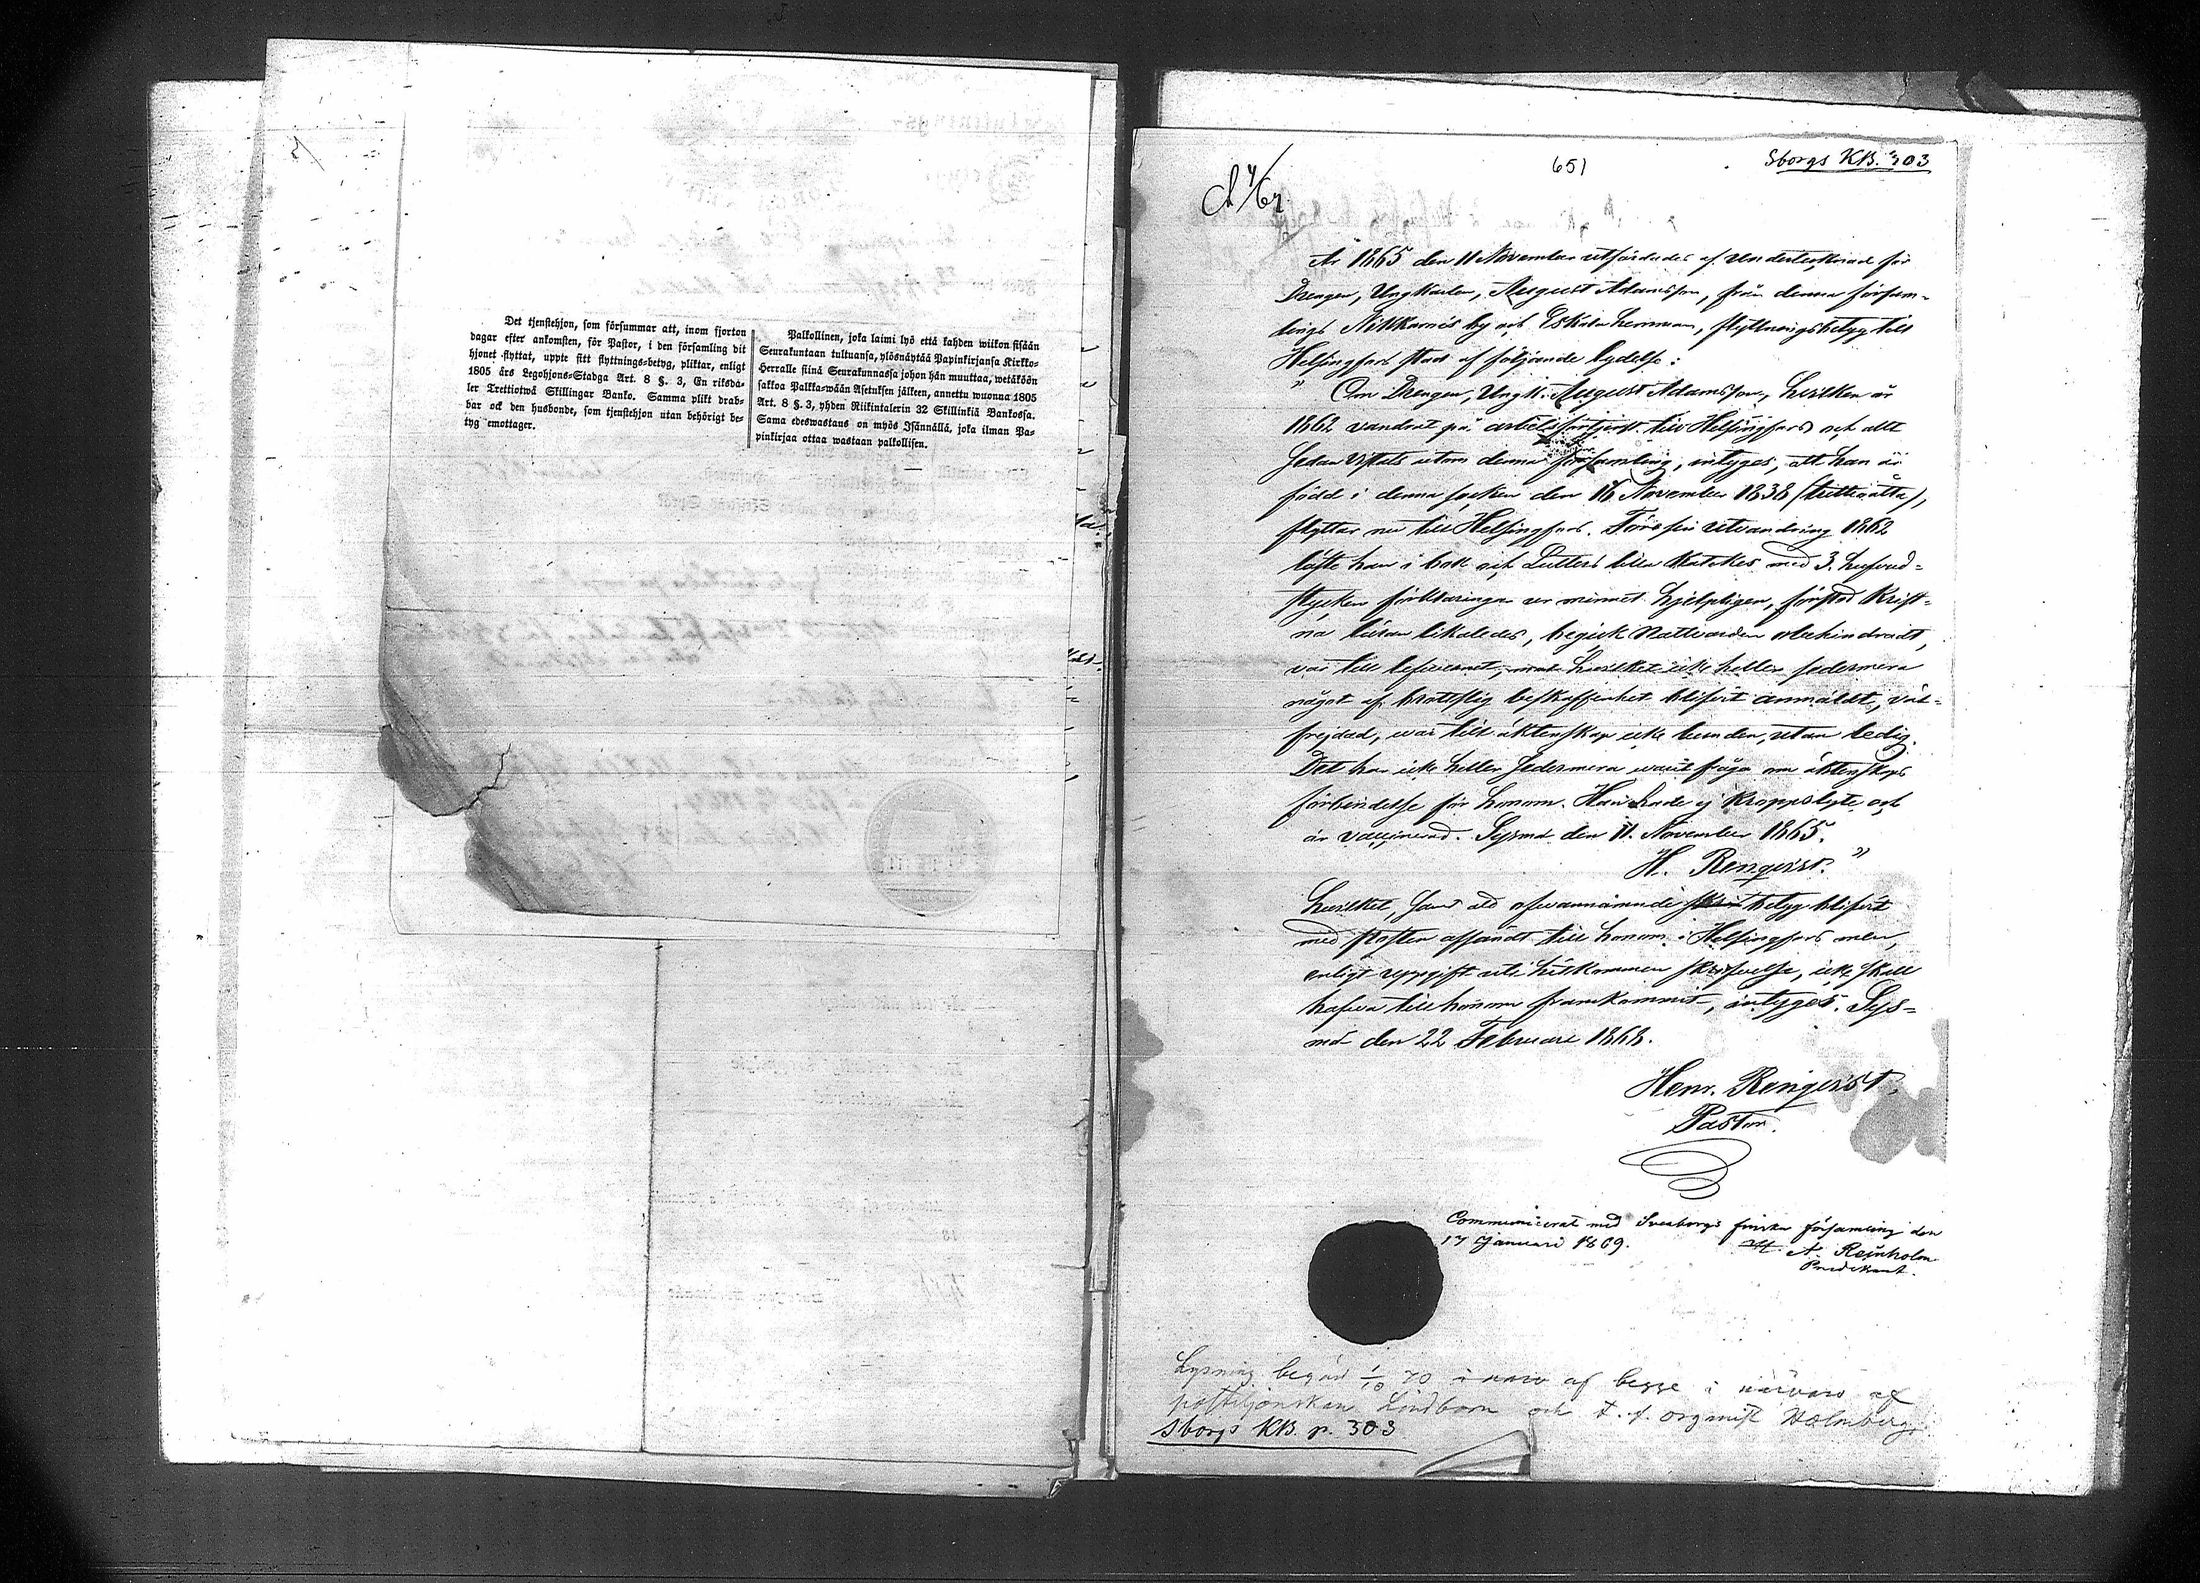 Det tjenstehjon, som försummar att, inom fjorton
dagar efter ankomsten, för Pastor, i den församling dit
hjonet flyttat, uppte sitt flyttnings-betyg, pliktar, enligt
1805 års Legohjons-Stadga Art. 8 §. 3, En riksda-
ler Trettiotwå Skillingar Banko. Samma plikt drab-
bar ock den husbonde, som tjenstehjon utan behörigt be-
tyg emottager.
Palkollinen, joka laimi lyö että kahden wiikon sisään
Seurakuntaan tultuansa, ylösnäytää Papinkirjansa Kirkko-
Herralle siinä Seurakunnassa johon hän muuttaa, wetäköön
sakkoa Palkka-wään Asetuksen jälkeen, annettu wuonna 1805
Art. 8 §. 3, yhden Riikintalerin 32 Skillinkiä Bankossa.
Sama edeswastaus on myös Isännällä, joka ilman Pa-
pinkirjaa ottaa wastaan palkollisen.
651
Sborgs KB. 303
År 1865 den 11 November utfärdades af Undertecknad för
Drengen, Ungkarlen, August Adamsson, från denna försam-
lings Nikkaroís by och Eskola hemman, flyttningsbetyg till
Helsingfors stad af följande lydelse:
" Om Drengen, Ungk. August Adamsson, hvilken år
1862 vandrat på arbetsförtjenst till Helsingfors och allt
sedan vistats utom denna församling, intygas, att han är
född i denna socken den 16 November 1838 (trettioåtta),
flyttar nu till Helsingfors. Före sin utvandring 1862
läste han i bok och Lutters lilla Katekes med 3. hufvud-
styckens förklaringar ur minnet hjelpligen, förstod Krist-
na läran likaledes, begick Nattvarden obehindradt,
var till lefvernet, mot hvilket icke heller sedermera
något af brottslig beskaffenhet blifvit anmäldt, väl-
frejdad, war till äktenskap icke bunden, utan ledig.
Det har icke heller sedermera warit fråga om äktenskaps
förbindelse för honom. Han hade ej kroppslyte och
är vaccinerad. Sysmä den 11. November 1865.
H. Renqvist."
hvilket, samt att ofvannämnde betyg blifvit
med posten afsändt till honom i Helsingfors men,
enligt uppgift uti hitkommen skrifvelse, icke skall
hafva till honom framkommit, intygas. Sys-
mä den 22 Februari 1868.
Henr. Renqvist,
Pastor.
Communicerat med Sveaborgs finska församling den
17 Januari 1869. A. Reinholm
Predikant.
Lysning begärd 1/10 70 i närv af begge i närvaro af
postiljonskan Lindbom och t. f. organist Holmberg.
Sborgs KB. p. 303